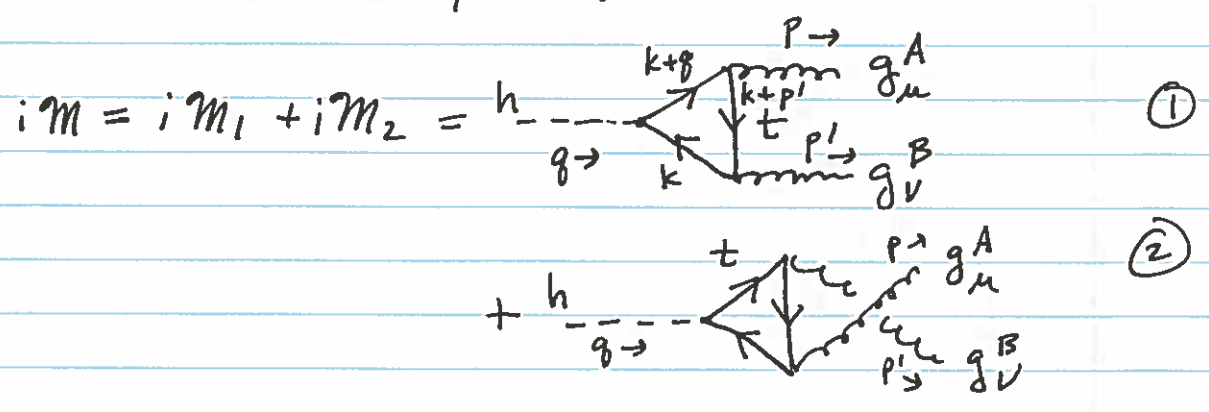 iM = iM₁ + iM₂ = h q→ k+q k k+p' t P→ g^A_μ p'→ g^B_ν ①
+ h q→ t p→ g^A_μ p'→ g^B_ν ②